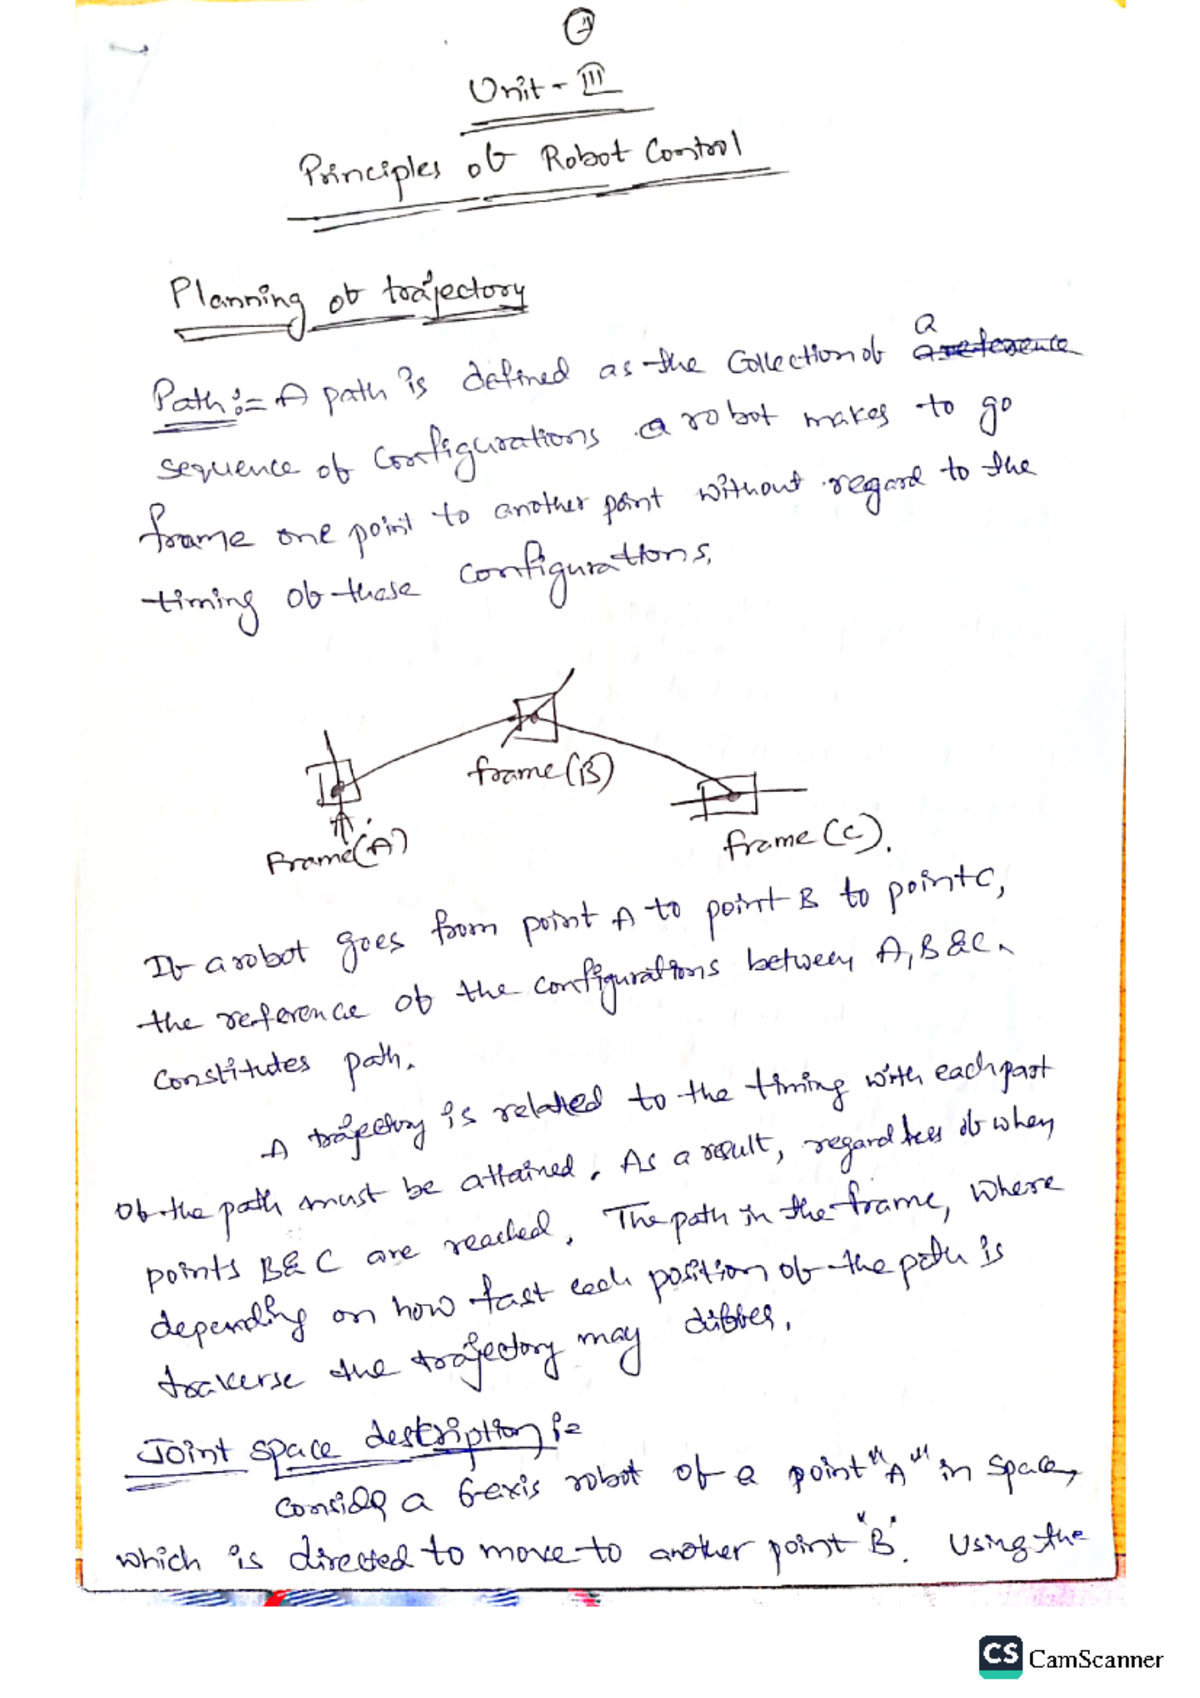 Unit - III
Principles of Robot Control
Planning of trajectory
Path:- A path is defined as the Collection of a
sequence of Configurations a robot makes to go
frame one point to another point without regard to the
timing of these configurations.
frame (B)
Frame (A)
frame (C).
If a robot goes from point A to point B to point C,
the reference of the configurations between A, B & C
constitutes path.
A trajectory is related to the timing with each part
of the path must be attained. As a result, regardless of when
points B & C are reached. The path in the frame, where
depending on how fast each position of the path is
traverse the trajectory may differ.
Joint space description:-
Consider a 6-axis robot of a point "A" in space,
which is directed to move to another point "B". Using the
CS CamScanner